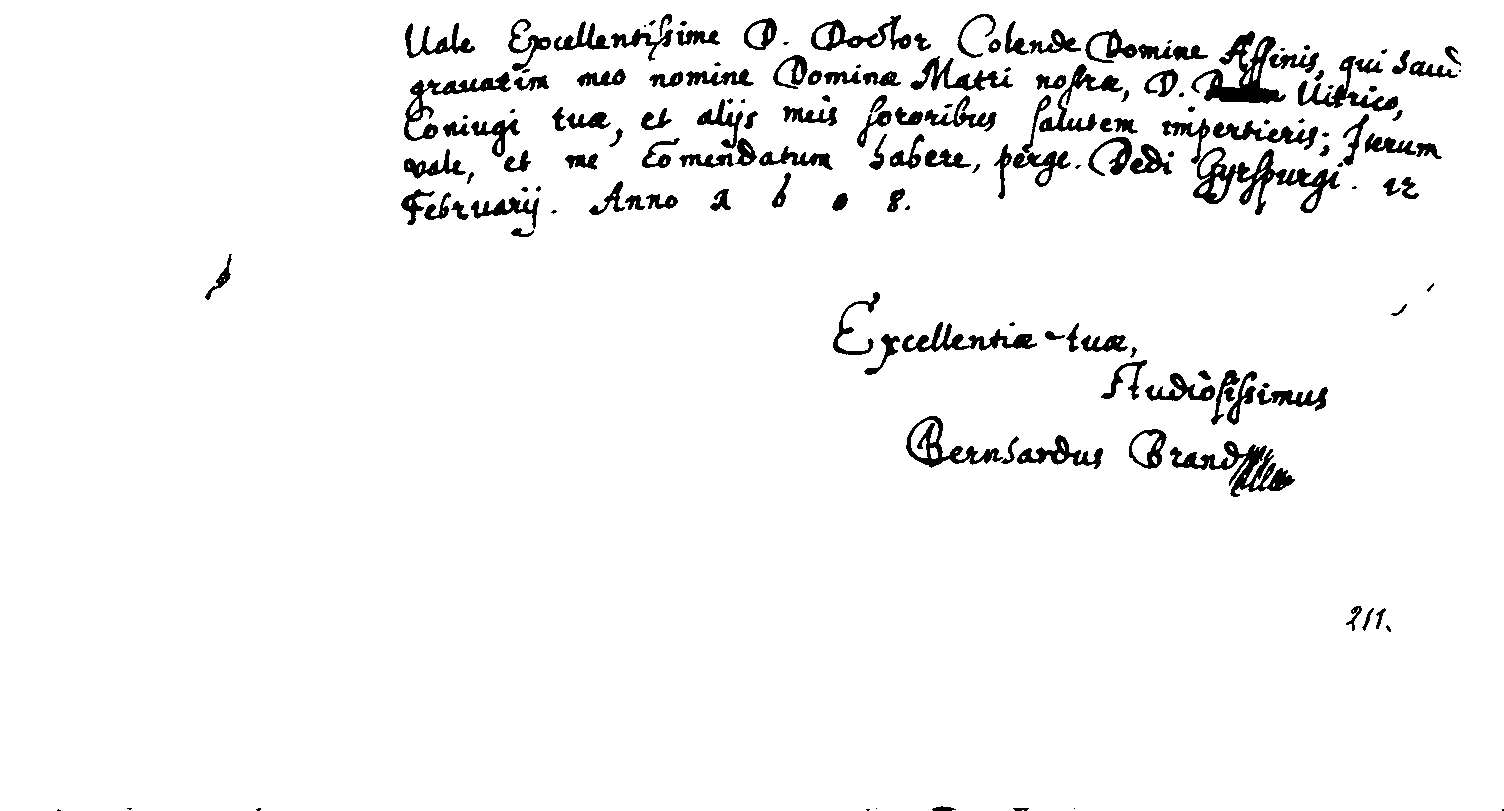 Vale Excellentissime D. Doctor Colende Domine Affinis, qui haud
gravatim meo nomine Dominæ Matri nostræ, D. Vitrico,
Coniugi tuæ, et alijs meis sororibus salutem impertieris; Iterum
vale, et me Com̄endatum habere, perge. Dedi Gyrspurgi. 12
Februarij. Anno 1 6 0 8.
Excellentiæ tuæ,
Studiosissimus
Bernhardus Brand
211.